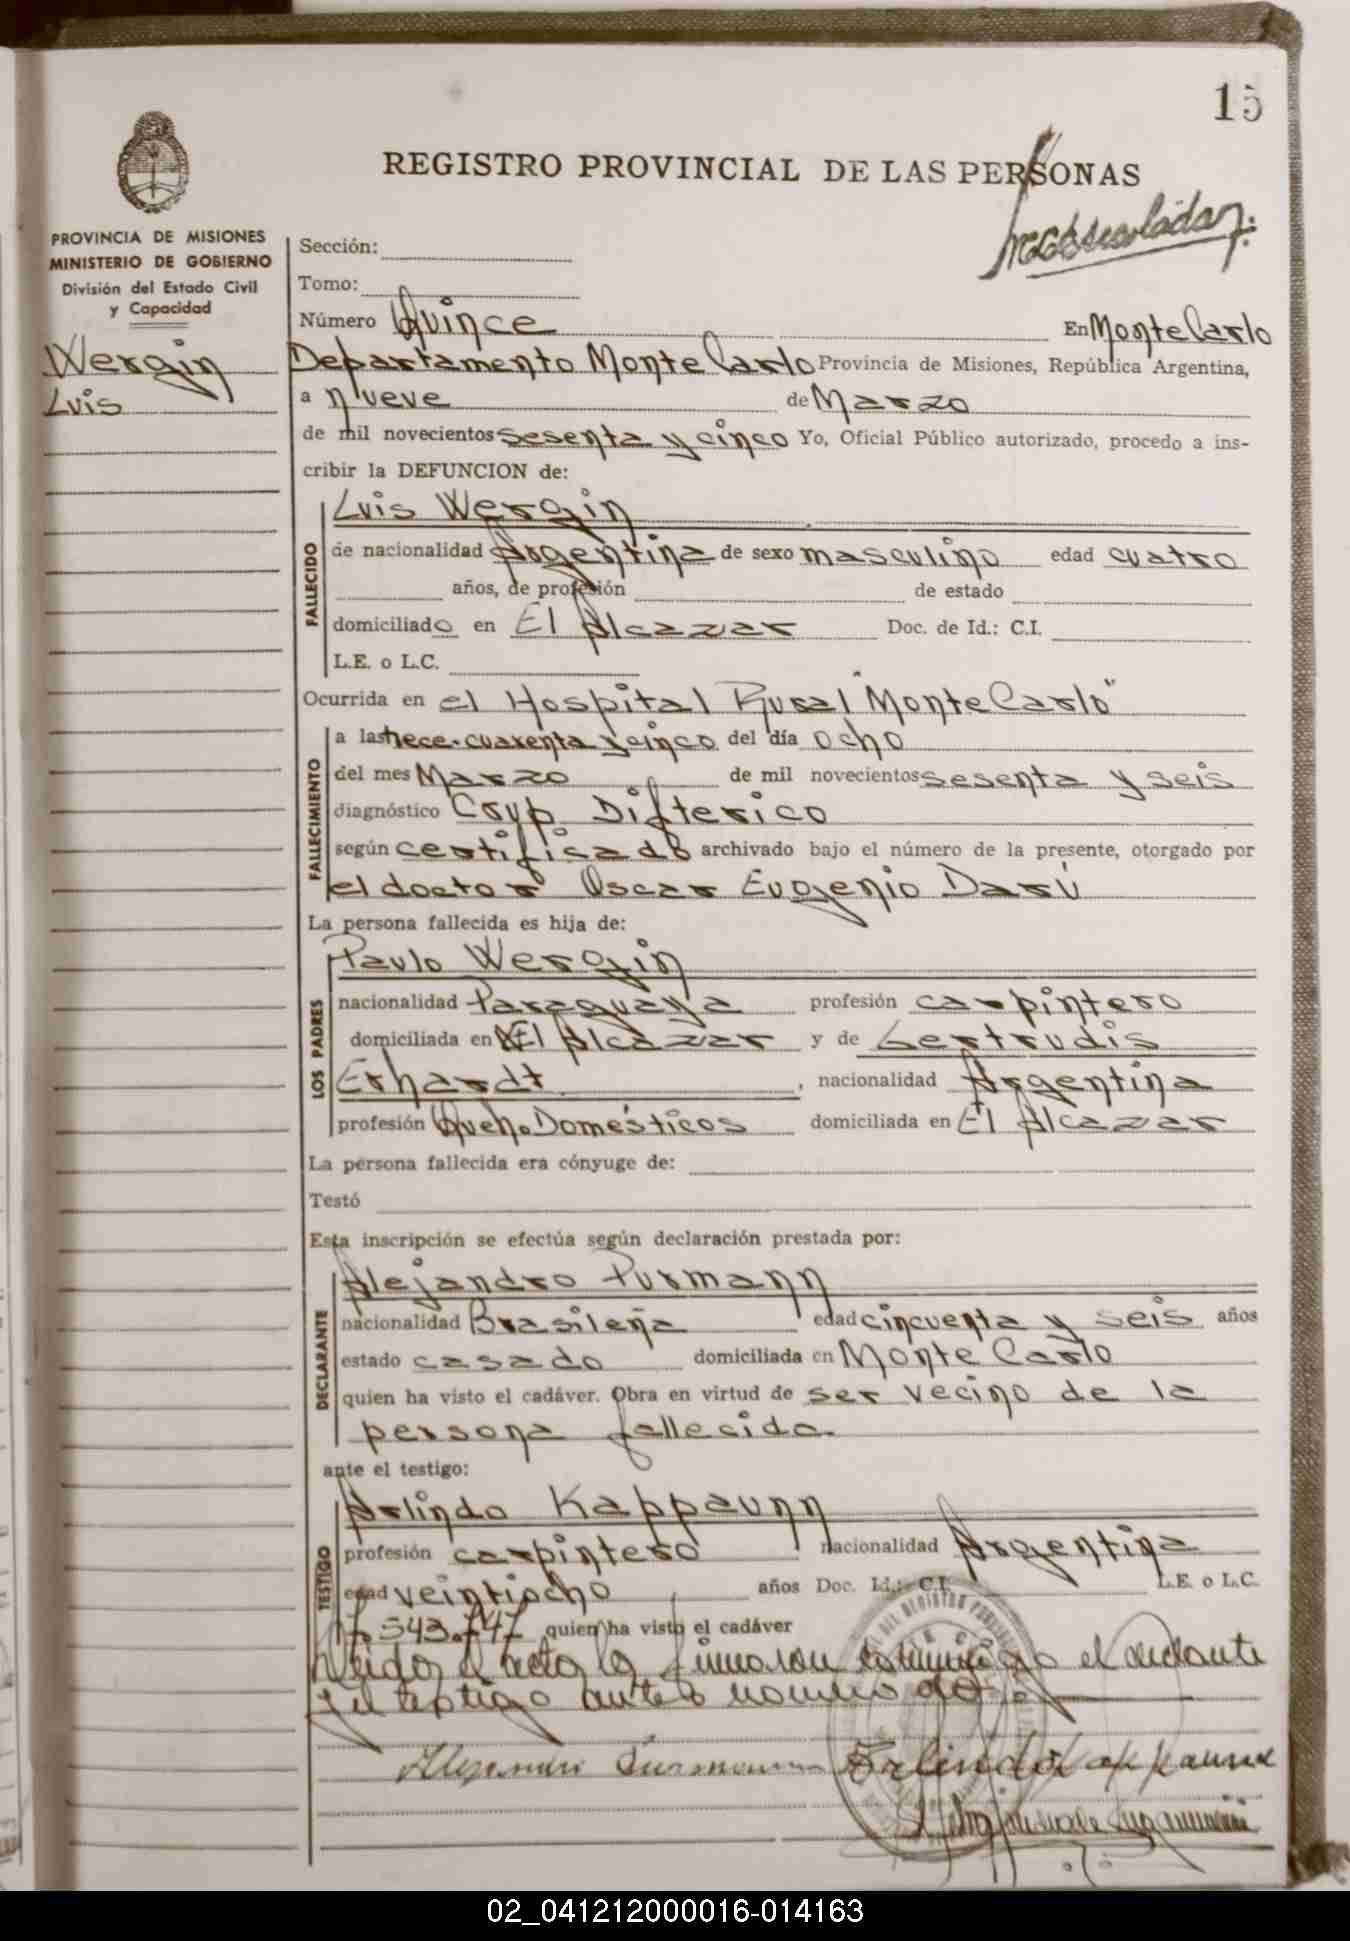 15
REGISTRO PROVINCIAL DE LAS PERSONAS
PROVINCIA DE MISIONES
MINISTERIO DE GOBIERNO
División del Estado Civil
y Capacidad
Wergin
Luis
Sección:
Tomo:
Número Quince En Monte Carlo
Departamento Monte Carlo Provincia de Misiones, República Argentina,
a nueve de Marzo
de mil novecientos sesenta y cinco Yo, Oficial Público autorizado, procedo a ins-
cribir la DEFUNCION de:
FALLECIDO
Luis Wergin
de nacionalidad Argentina de sexo masculino edad cuatro
años, de profesión de estado
domiciliado en El Alcazar Doc. de Id.: C.I.
L.E. o L.C.
Ocurrida en el Hospital Rural "Monte Carlo"
FALLECIMIENTO
a las trece. cuarenta y cinco del día ocho
del mes Marzo de mil novecientos sesenta y seis
diagnóstico Crup Difterico
según certificado archivado bajo el número de la presente, otorgado por
el doctor Oscar Eugenio Darú
La persona fallecida es hija de:
LOS PADRES
Paulo Wergin
nacionalidad Paraguaya profesión carpintero
domiciliada en El Alcazar y de Gertrudis
Erhardt , nacionalidad Argentina
profesión Queh. Domésticos domiciliada en El Alcazar
La persona fallecida era cónyuge de:
Testó
Esta inscripción se efectúa según declaración prestada por:
DECLARANTE
Alejandro Purmann
nacionalidad Brasileña edad cincuenta y seis años
estado casado domiciliada en Monte Carlo
quien ha visto el cadáver. Obra en virtud de ser vecino de la
persona fallecida.
ante el testigo:
TESTIGO
Arlindo Kappaunn
profesión carpintero nacionalidad Argentina
edad veintiocho años Doc. Id.: C.I. L.E. o L.C.
7.543.747 quien ha visto el cadáver
acta la firmaron conmigo el
y el testigo ante
Arlindo Kappaunn
02_041212000016-014163